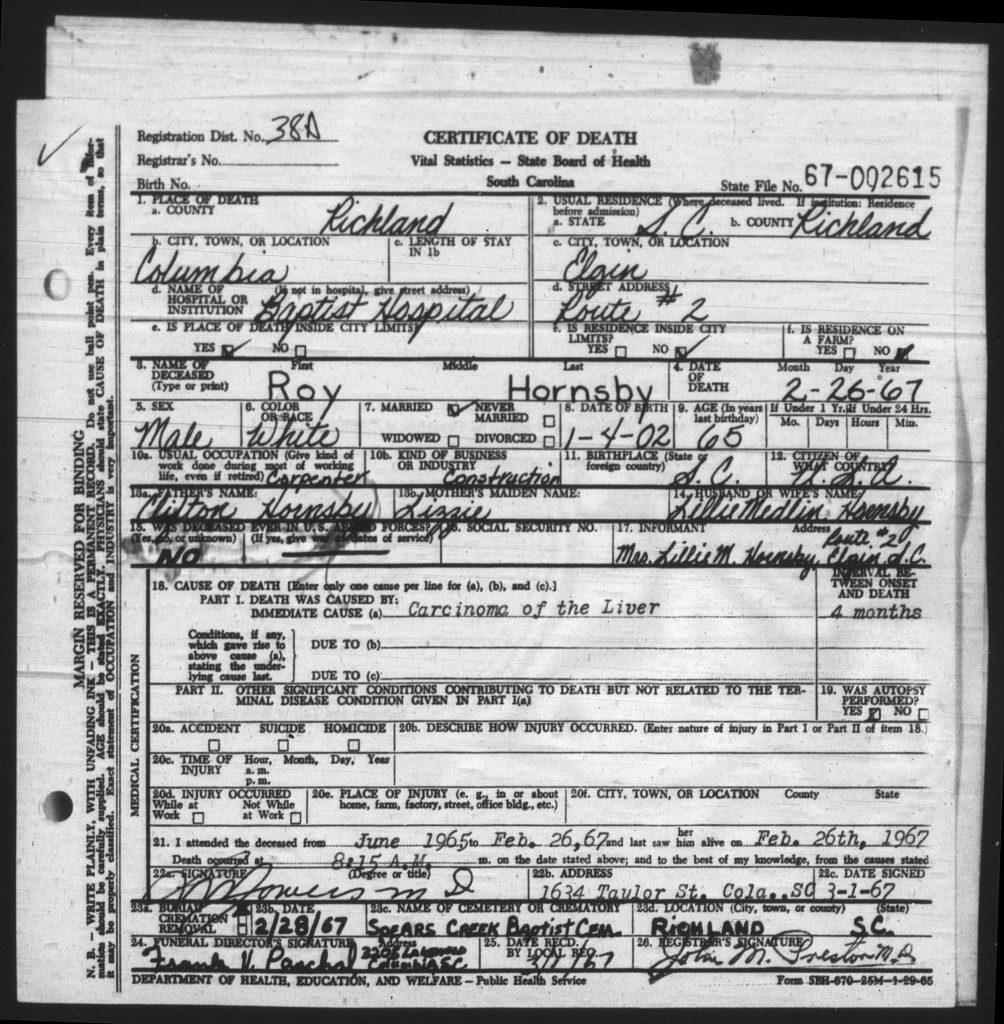 Registration Dist. No. 38A
CERTIFICATE OF DEATH
Registrar's No.
Vital Statistics — State Board of Health
Birth No.
South Carolina
State File No. 67-002615
1. PLACE OF DEATH
a. COUNTY Richland
2. USUAL RESIDENCE (Where deceased lived. If institution: Residence before admission)
a. STATE S. C. b. COUNTY Richland
b. CITY, TOWN, OR LOCATION Columbia
c. LENGTH OF STAY IN 1b
c. CITY, TOWN, OR LOCATION Elgin
d. NAME OF HOSPITAL OR INSTITUTION (If not in hospital, give street address) Baptist Hospital
d. STREET ADDRESS Route #2
e. IS PLACE OF DEATH INSIDE CITY LIMITS?
YES NO
e. IS RESIDENCE INSIDE CITY LIMITS?
YES NO
f. IS RESIDENCE ON A FARM?
YES NO
3. NAME OF DECEASED (Type or print)
First Middle Last
Roy Hornsby
4. DATE OF DEATH
Month Day Year
2-26-67
5. SEX Male
6. COLOR OR RACE White
7. MARRIED NEVER MARRIED
WIDOWED DIVORCED
8. DATE OF BIRTH 1-4-02
9. AGE (In years last birthday) 65
If Under 1 Yr. If Under 24 Hrs.
Mo. Days Hours Min.
10a. USUAL OCCUPATION (Give kind of work done during most of working life, even if retired) Carpenter
10b. KIND OF BUSINESS OR INDUSTRY Construction
11. BIRTHPLACE (State or foreign country) S.C.
12. CITIZEN OF WHAT COUNTRY U.S.A.
13a. FATHER'S NAME: Clifton Hornsby
13b. MOTHER'S MAIDEN NAME: Lizzie
14. HUSBAND OR WIFE'S NAME Lillie Medlin Hornsby
15. WAS DECEASED EVER IN U.S. ARMED FORCES?
(Yes, no, or unknown) (If yes, give war or dates of service)
NO
16. SOCIAL SECURITY NO.
17. INFORMANT Address
Mrs. Lillie M. Hornsby, Route #2 Elgin, S.C.
18. CAUSE OF DEATH [Enter only one cause per line for (a), (b), and (c).]
INTERVAL BETWEEN ONSET AND DEATH
PART I. DEATH WAS CAUSED BY:
IMMEDIATE CAUSE (a) Carcinoma of the Liver
4 months
Conditions, if any, which gave rise to above cause (a), stating the underlying cause last.
DUE TO (b)
DUE TO (c)
PART II. OTHER SIGNIFICANT CONDITIONS CONTRIBUTING TO DEATH BUT NOT RELATED TO THE TERMINAL DISEASE CONDITION GIVEN IN PART I(a)
19. WAS AUTOPSY PERFORMED?
YES NO
20a. ACCIDENT SUICIDE HOMICIDE
20b. DESCRIBE HOW INJURY OCCURRED. (Enter nature of injury in Part I or Part II of item 18.)
20c. TIME OF INJURY Hour, Month, Day, Year
a. m.
p. m.
20d. INJURY OCCURRED
While at Work Not While at Work
20e. PLACE OF INJURY (e. g., in or about home, farm, factory, street, office bldg., etc.)
20f. CITY, TOWN, OR LOCATION County State
21. I attended the deceased from June 1965 to Feb. 26,67 and last saw her him alive on Feb. 26th, 1967
Death occurred at 8:15 A.M. m. on the date stated above; and to the best of my knowledge, from the causes stated
22a. SIGNATURE (Degree or title)
M D
22b. ADDRESS
1634 Taylor St. Cola., SC
22c. DATE SIGNED
3-1-67
23a. BURIAL CREMATION REMOVAL
23b. DATE 2/28/67
23c. NAME OF CEMETERY OR CREMATORY Spears Creek Baptist Cem.
23d. LOCATION (City, town, or county) (State)
Richland S.C.
24. FUNERAL DIRECTOR'S SIGNATURE Address
Frank V. Paschal Columbia S.C.
25. DATE RECD. BY LOCAL REG.
26. REGISTRAR'S SIGNATURE
John M. Preston M.D.
DEPARTMENT OF HEALTH, EDUCATION, AND WELFARE — Public Health Service
Form SBH-670-25M-1-29-65
MEDICAL CERTIFICATION
MARGIN RESERVED FOR BINDING
N. B. — WRITE PLAINLY, WITH UNFADING INK — THIS IS A PERMANENT RECORD. Do not use ball point pen. Every item of information should be carefully supplied. AGE should be stated EXACTLY. PHYSICIANS should state CAUSE OF DEATH in plain terms, so that it may be properly classified. Exact statement of OCCUPATION and INDUSTRY is very important.